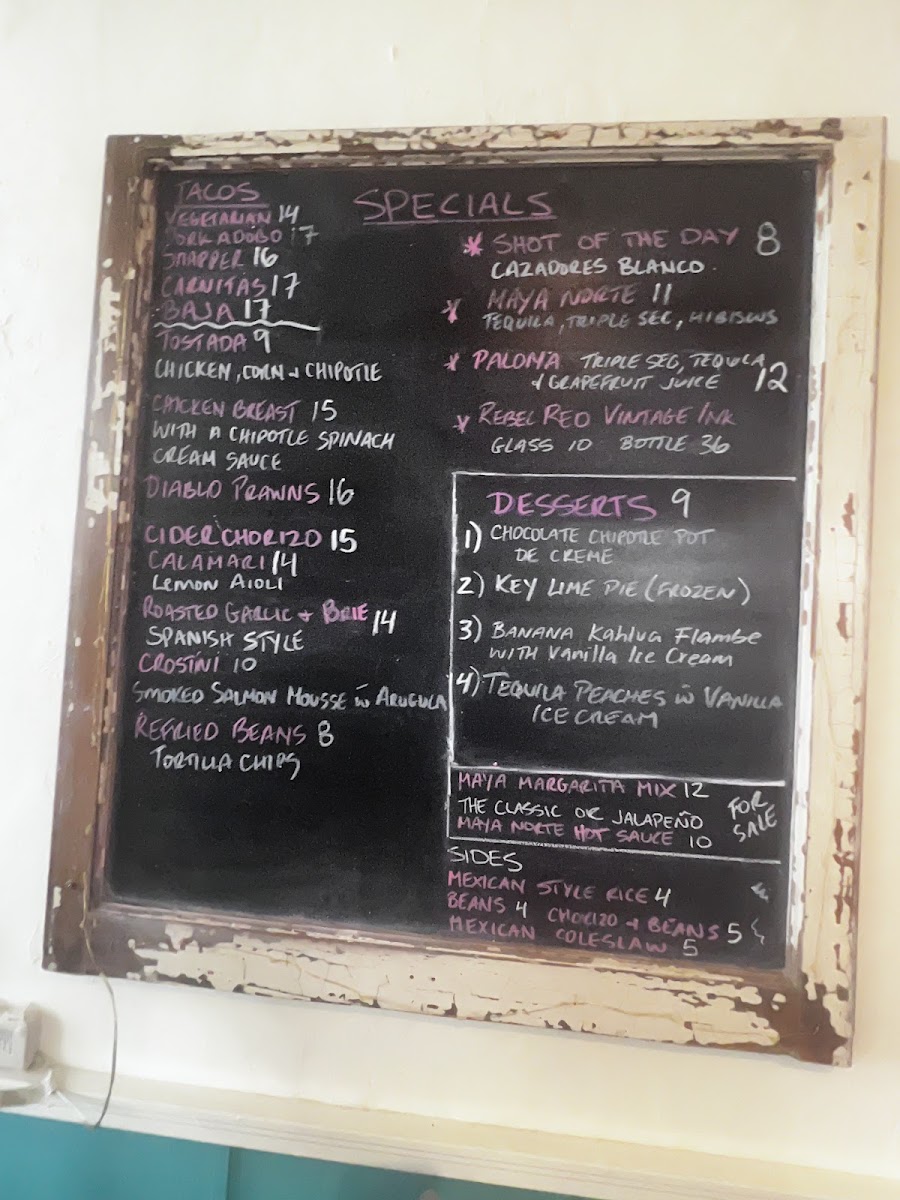 TACOS
VEGETARIAN 14
PORK ADOBO 17
SNAPPER 16
CARNITAS 17
BAJA 17
TOSTADA 9
CHICKEN, CORN + CHIPOTLE
CHICKEN BREAST 15
WITH A CHIPOTLE SPINACH
CREAM SAUCE
DIABLO PRAWNS 16
CIDER CHORIZO 15
CALAMARI 14
LEMON AIOLI
ROASTED GARLIC + BRIE 14
SPANISH STYLE
CROSTINI 10
SMOKED SALMON MOUSSE W ARUGULA
REFRIED BEANS 8
TORTILLA CHIPS
SPECIALS
* SHOT OF THE DAY 8
CAZADORES BLANCO.
* MAYA NORTE 11
TEQUILA, TRIPLE SEC, HIBISCUS
* PALOMA TRIPLE SEC, TEQUILA,
+ GRAPEFRUIT JUICE 12
* REBEL RED VINTAGE INK
GLASS 10 BOTTLE 36
DESSERTS 9
1) CHOCOLATE CHIPOTLE POT
DE CREME
2) KEY LIME PIE (FROZEN)
3) BANANA Kahlua Flambe
WITH Vanilla Ice Cream
4) TEQUILA PEACHES W VANILLA
ICE CREAM
MAYA MARGARITA MIX 12
THE CLASSIC OR JALAPEÑO
MAYA NORTE HOT SAUCE 10
FOR
SALE
SIDES
MEXICAN STYLE RICE 4
BEANS 4 CHORIZO + BEANS 5
MEXICAN COLESLAW 5